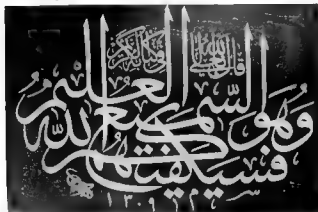 قال الله تعالى
فسيكفيكهم الله
وهو السميع العليم
١٣٠٩